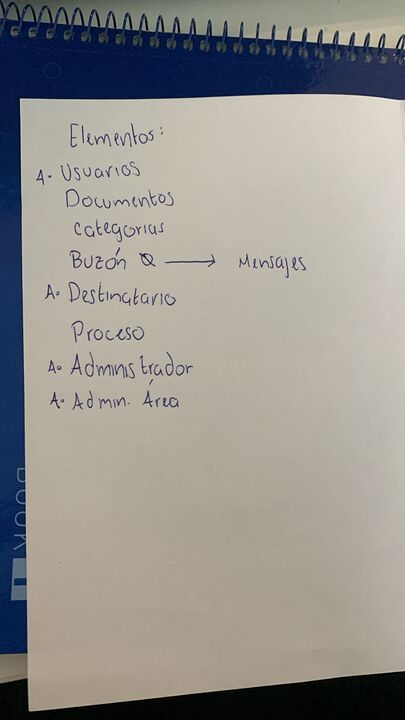 Elementos:
A. Usuarios
Documentos
categorias
Buzón → Mensajes
A. Destinatario
Proceso
A. Administrador
A. Admin. Área
BOOK